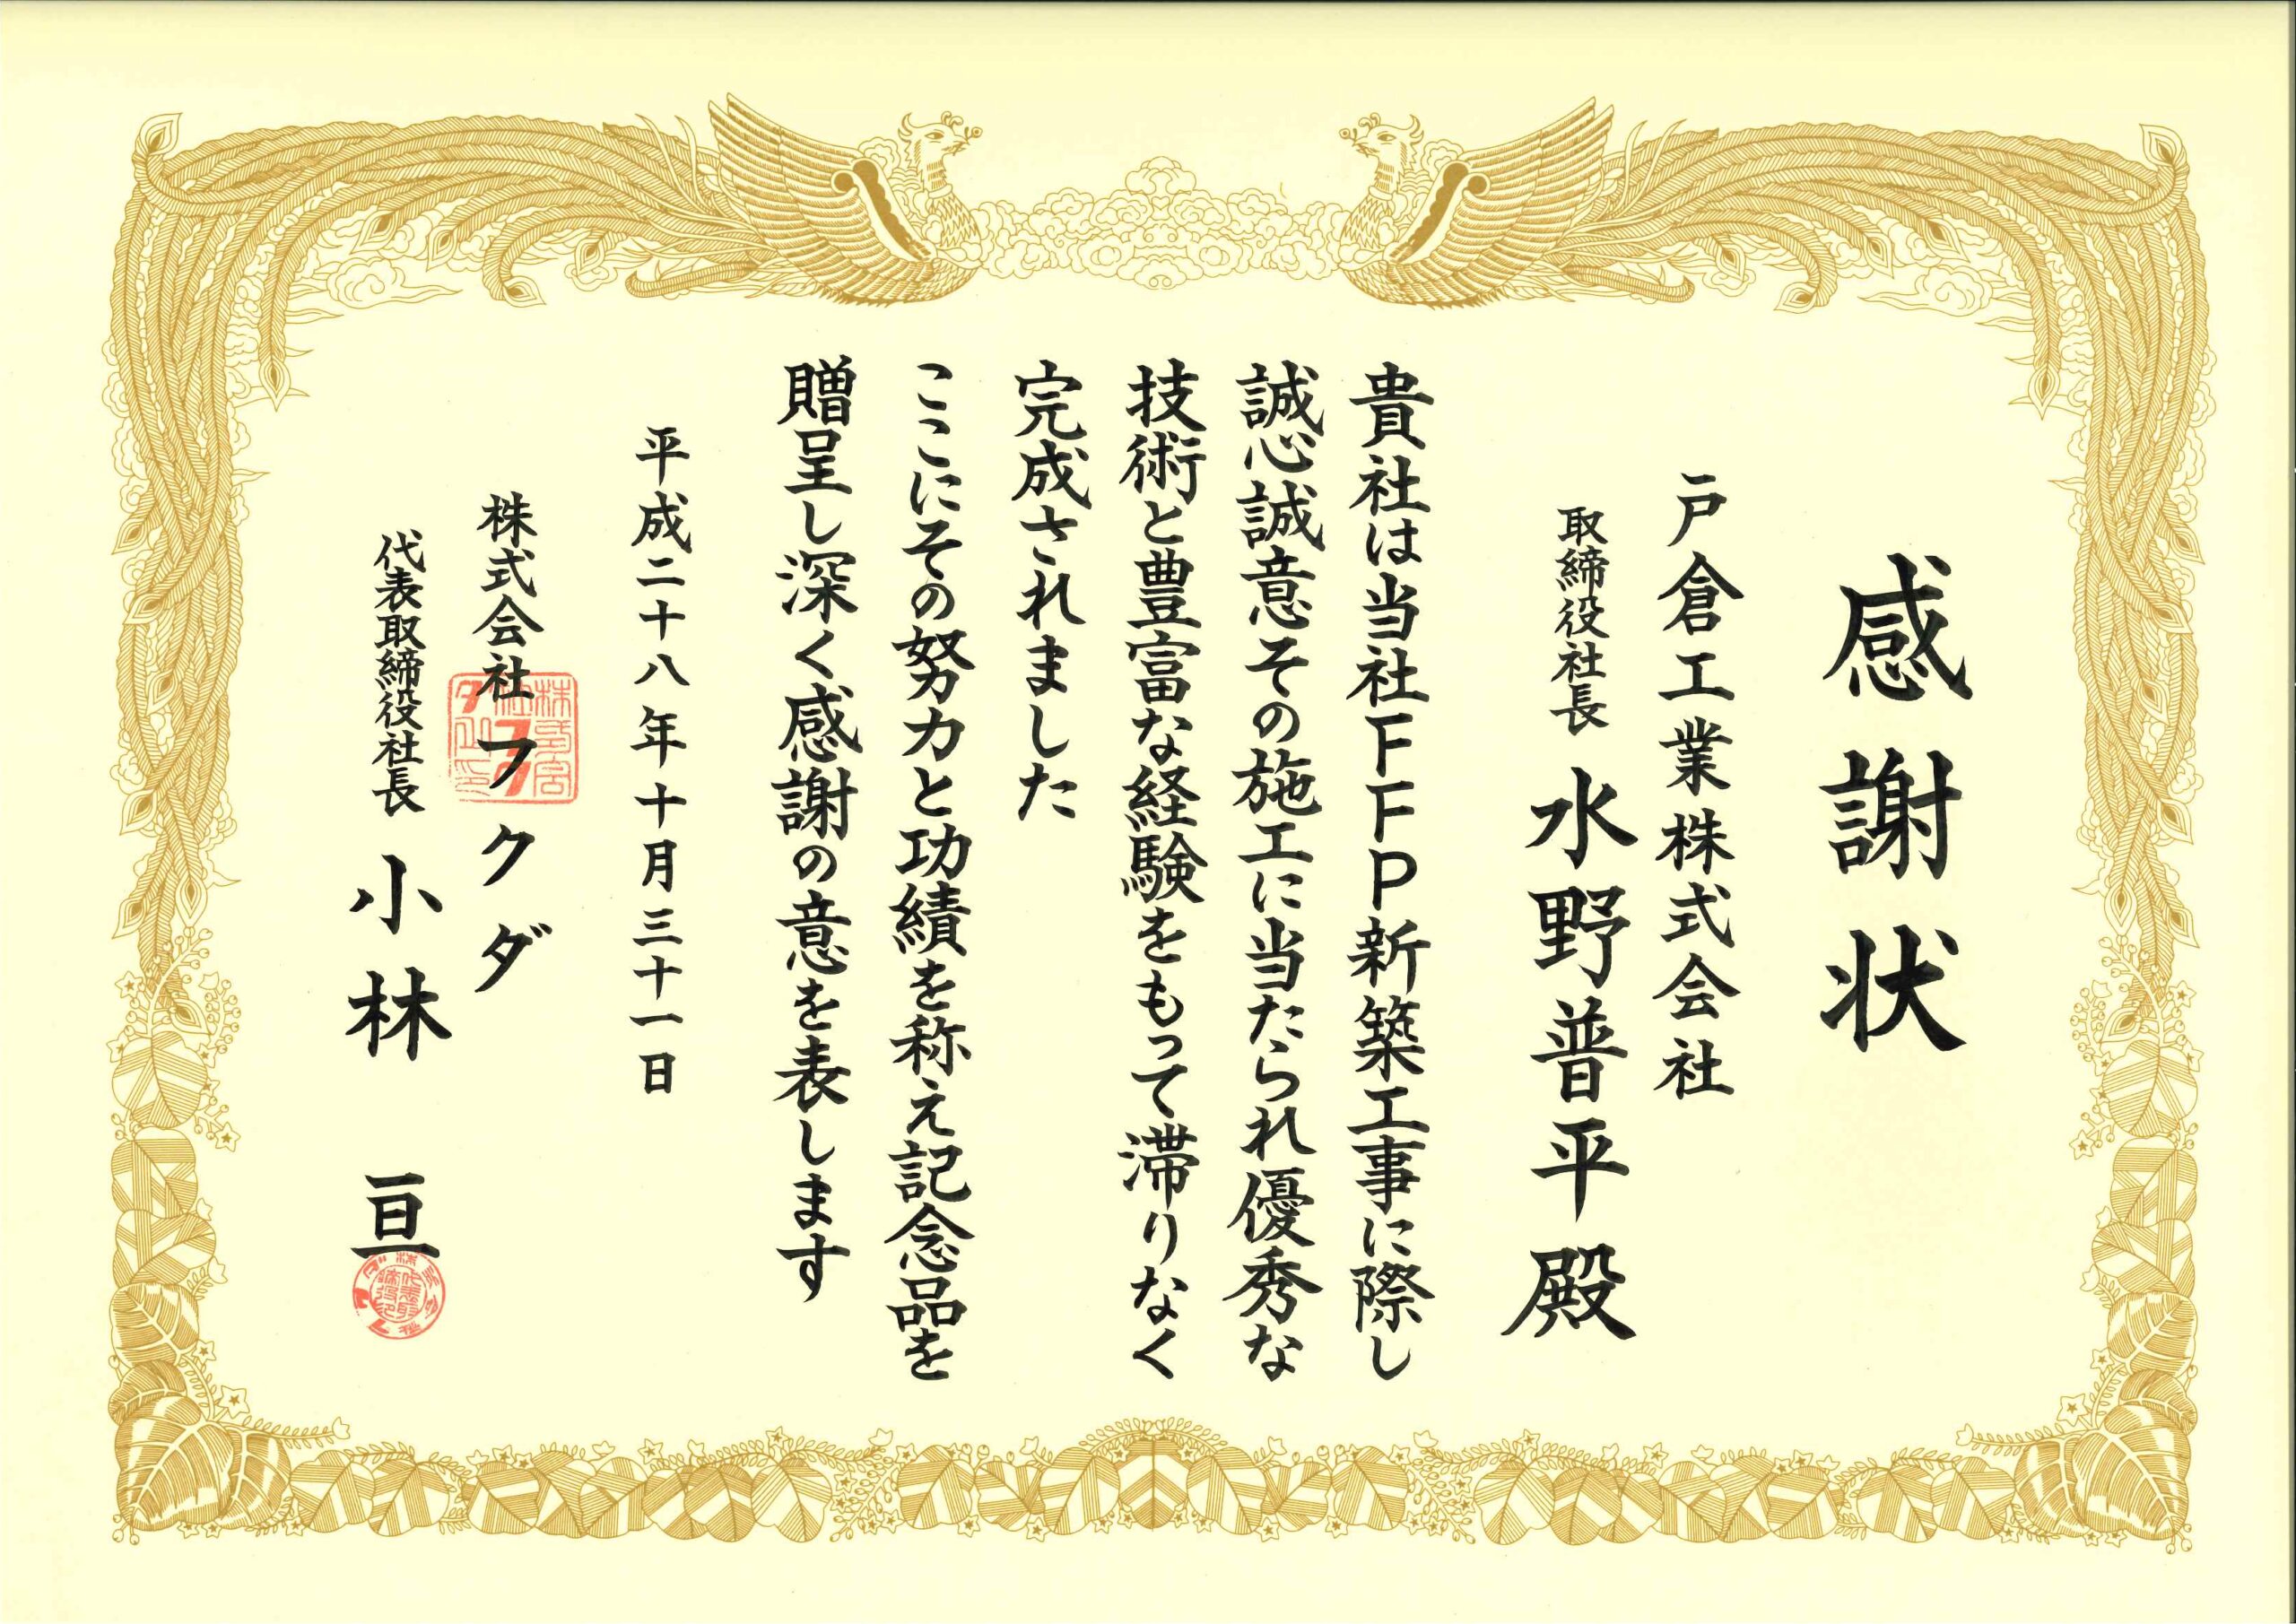 感謝状
戸倉工業株式会社
取締役社長 水野普平殿
貴社は当社FFP新築工事に際し
誠心誠意その施工に当たられ優秀な
技術と豊富な経験をもって滞りなく
完成されました
ここにその努力と功績を称え記念品を
贈呈し深く感謝の意を表します
平成二十八年十月三十一日
株式会社フクダ
代表取締役社長 小林 亘